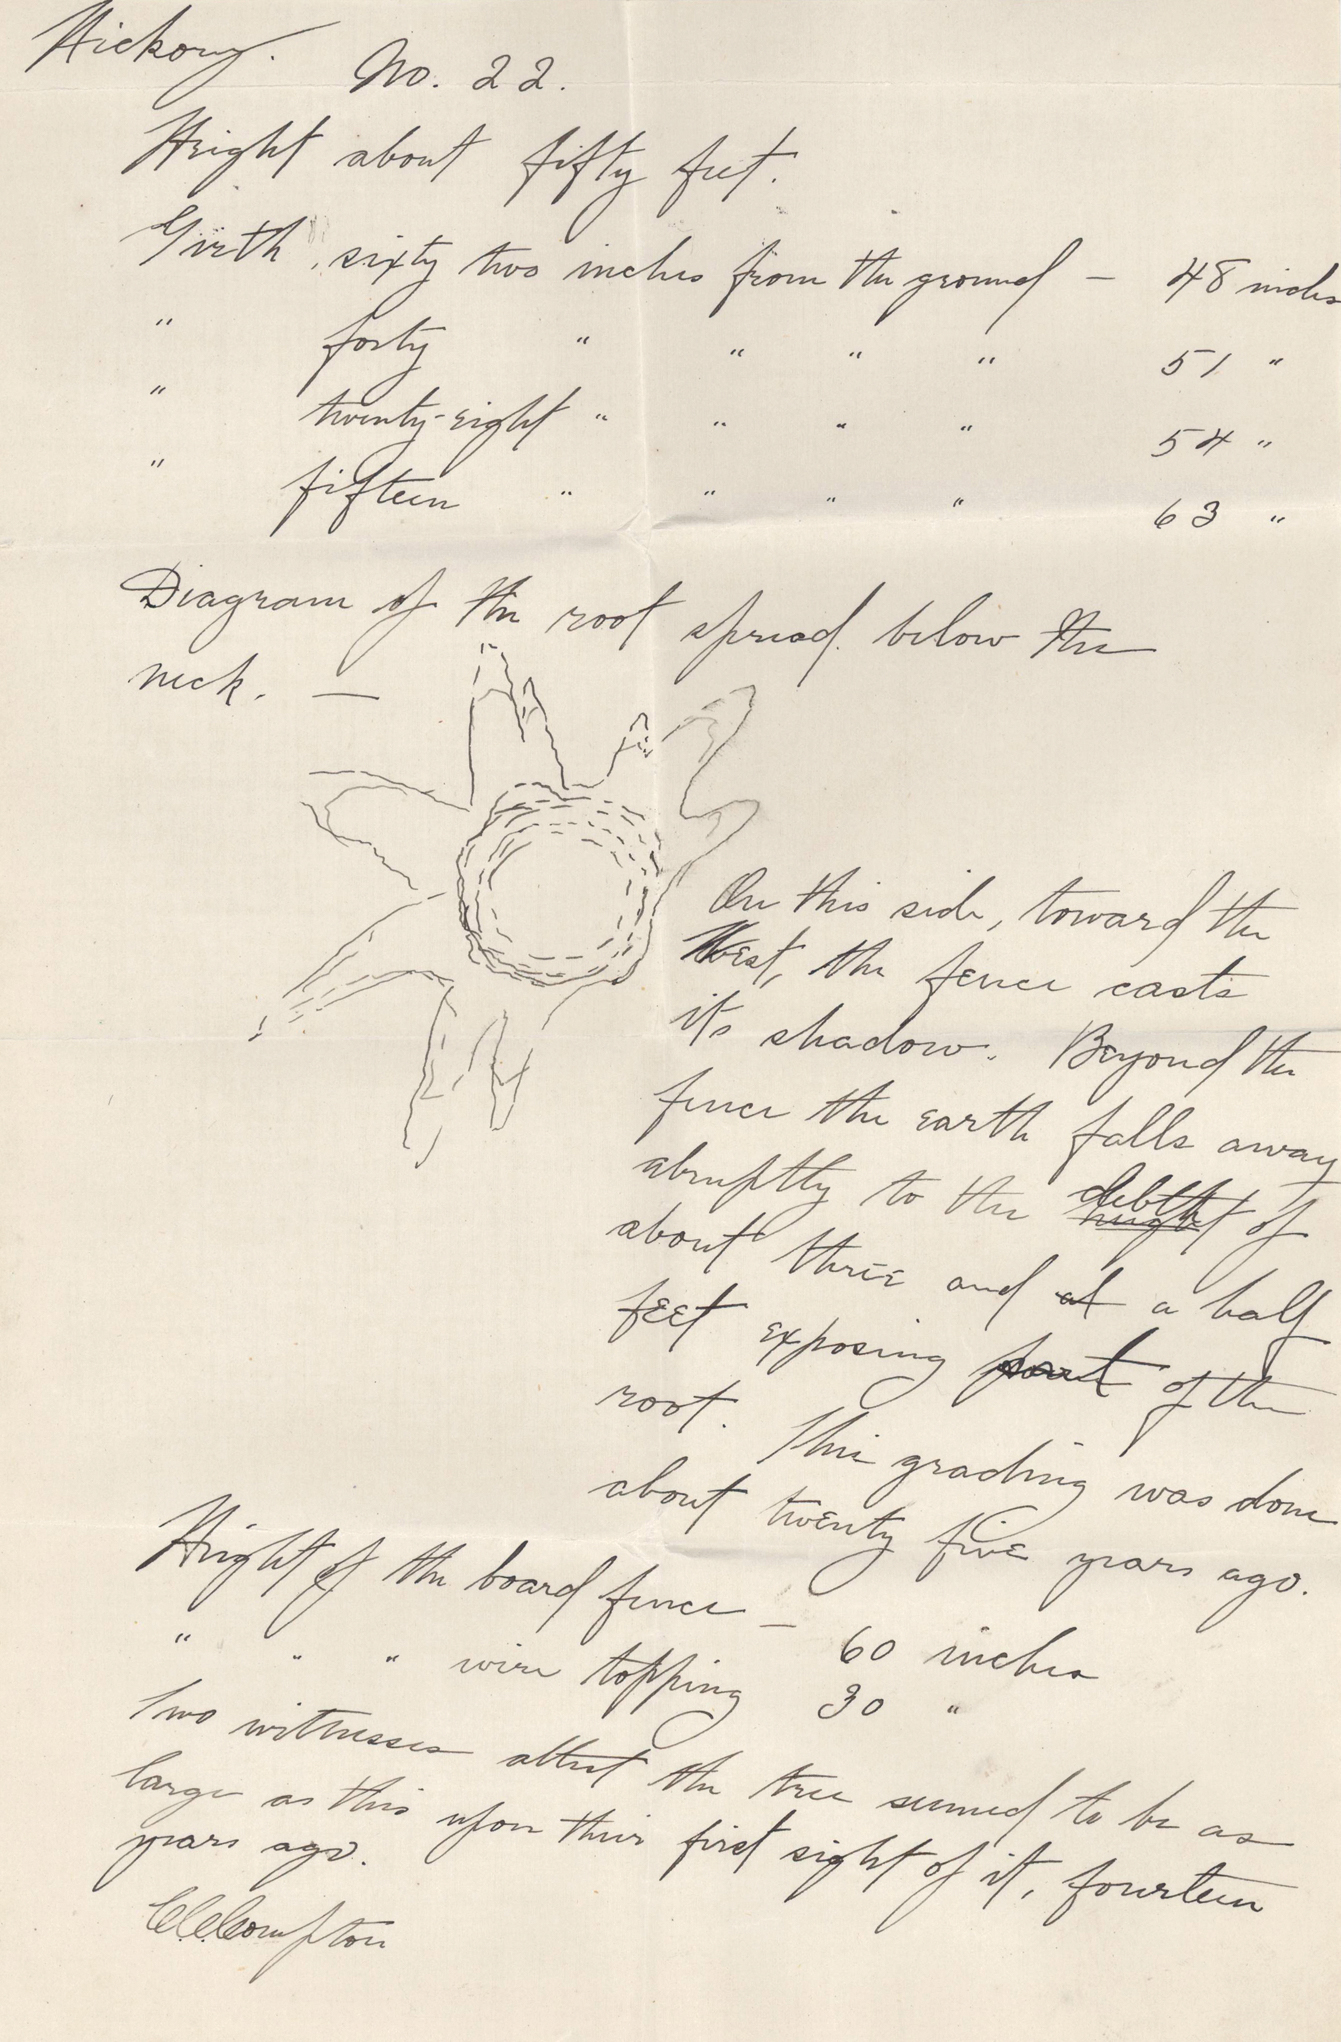 Hickory. No. 22.
Height about fifty feet.
Girth, sixty two inches from the ground — 48 inches
" forty " " " " 51 "
" twenty-eight " " " " 54 "
" fifteen " " " " 63 "
Diagram of the root spread below the
neck. —
On this side, toward the
West, the fence casts
its shadow. Beyond the
fence the earth falls away
abruptly to the debth hight of
about three and at a half
feet exposing part of the
root. This grading was done
about twenty five years ago.
Hight of the board fence — 60 inches
" " " wire topping 30 "
Two witnesses attest the tree seemed to be as
large as this upon their first sight of it, fourteen
years ago.
CCCompton